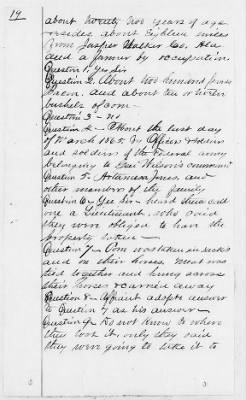 14
about twenty two years of age
resides about Eighteen miles
from Jasper Walker Co. Ala
and a farmer by occupation
Question 1. Yes Sir
Question 2. About two hundred
Bacon. and about ten or
bushels of corn—
Question 3 – No
Question 4 – About the last day
of March 1865. By Officers &
and soldiers of the Federal army
belonging to Gen Wilson's command
Question 5. Jones. and
other members of my family
Question 6 – Yes Sir – heard them and
one a Lieutenant. who said
they were obliged to have the
property taken –
Question 7 – Corn was taken in sacks
and on their horses. Meat was
tied together and hung across
their horses & carried away
Question 8 – Affiant adopts answer
to Question 7 as his answer –
Question 9. Do not know to where
they took it, only they said
they were going to take it to